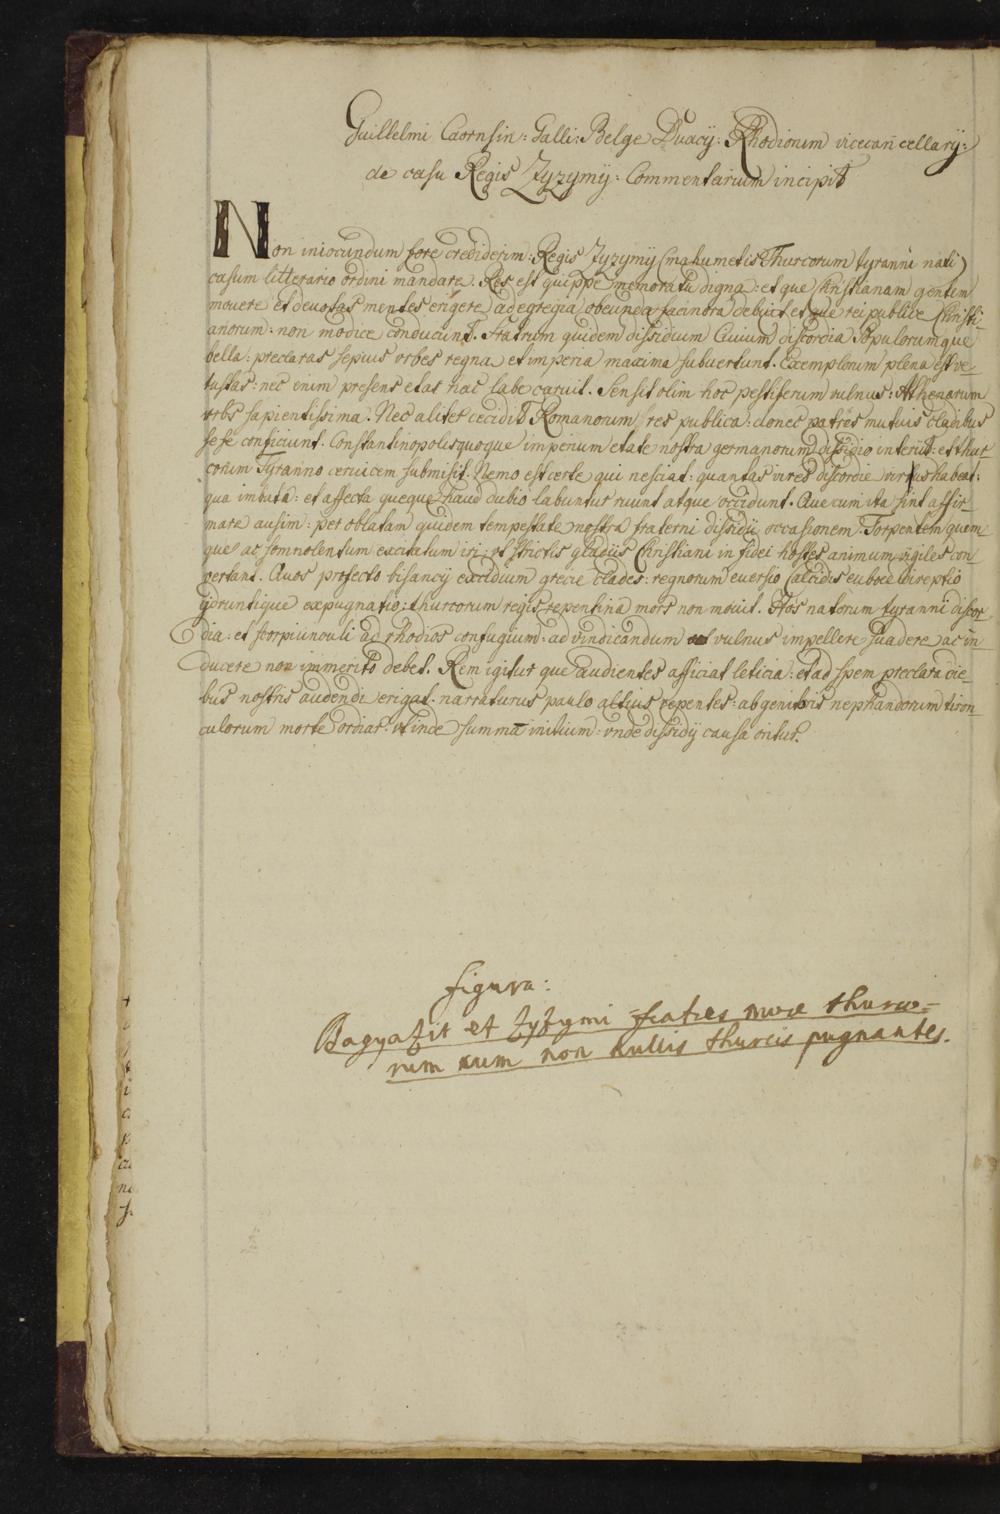 Guillelmi Caorsin: Galli: Belge Duacij: Rhodiorum vicecancellarij:
de casu Regis Zyzymij: Commentarium incipit
Non iniocundum fore crediderim: Regis Zyzymij (mahumetis Thurcorum tyranni nati)
casum litterario ordini mandare. Res est quippe memoratu digna: et que Christianam gentem
mouere et deuotas mentes erigere ad egregia obeunda facinora debuit et que rei publice Christi-
anorum: non modice conducunt. Fratrum quidem dissidium Ciuium discordia Populorumque
bella: preclaras sepius vrbes regna et imperia maxima subuertunt. Exemplorum plena est ve-
tustas: nec enim presens etas hac labe caruit. Sensit olim hoc pestiferum vulnus: Athenarum
vrbs sapientissima. Nec aliter cecidit Romanorum res publica: donec patres mutuis cladibus
sese conficiunt. Constantinopolis quoque imperium etate nostra germanorum dissidio interiit: et thur-
corum Tyranno ceruicem submisit. Nemo est certe qui nesciat: quantas vires discordie virus habeat:
qua imbuta: et affecta queque haud dubio labuntur ruunt atque occidunt. Que cum ita sint affir-
mare ausim: per oblatam quidem tempestate nostra fraterni dissidii occasionem. Torpentem quem-
que ac somnolentum excitatum iri: vt strictis gladiis Christiani in fidei hostes animum vigiles con-
vertant. Quos profecto bisancij excidium grecie clades: regnorum euersio Calcidis euboee direptio
ijdruntique expugnatio: thurcorum regis repentina mors non mouit. Hos natorum tyranni discor-
dia: et ad rhodios confugium: ad vindicandum vulnus impellere suadere ac in-
ducere non immerito debet. Rem igitur que audientes afficiat leticia: et ad spem preclara die-
bus nostris audendi erigat: narraturus paulo altius repentes: ab genitoris nephandorum tiron-
culorum morte ordiar: vt inde summe initium: vnde dissidij causa oritur.
figura:
Bagyazit et Zyzymi fratres more thurco-
rum cum non nullis thurcis pugnantes.